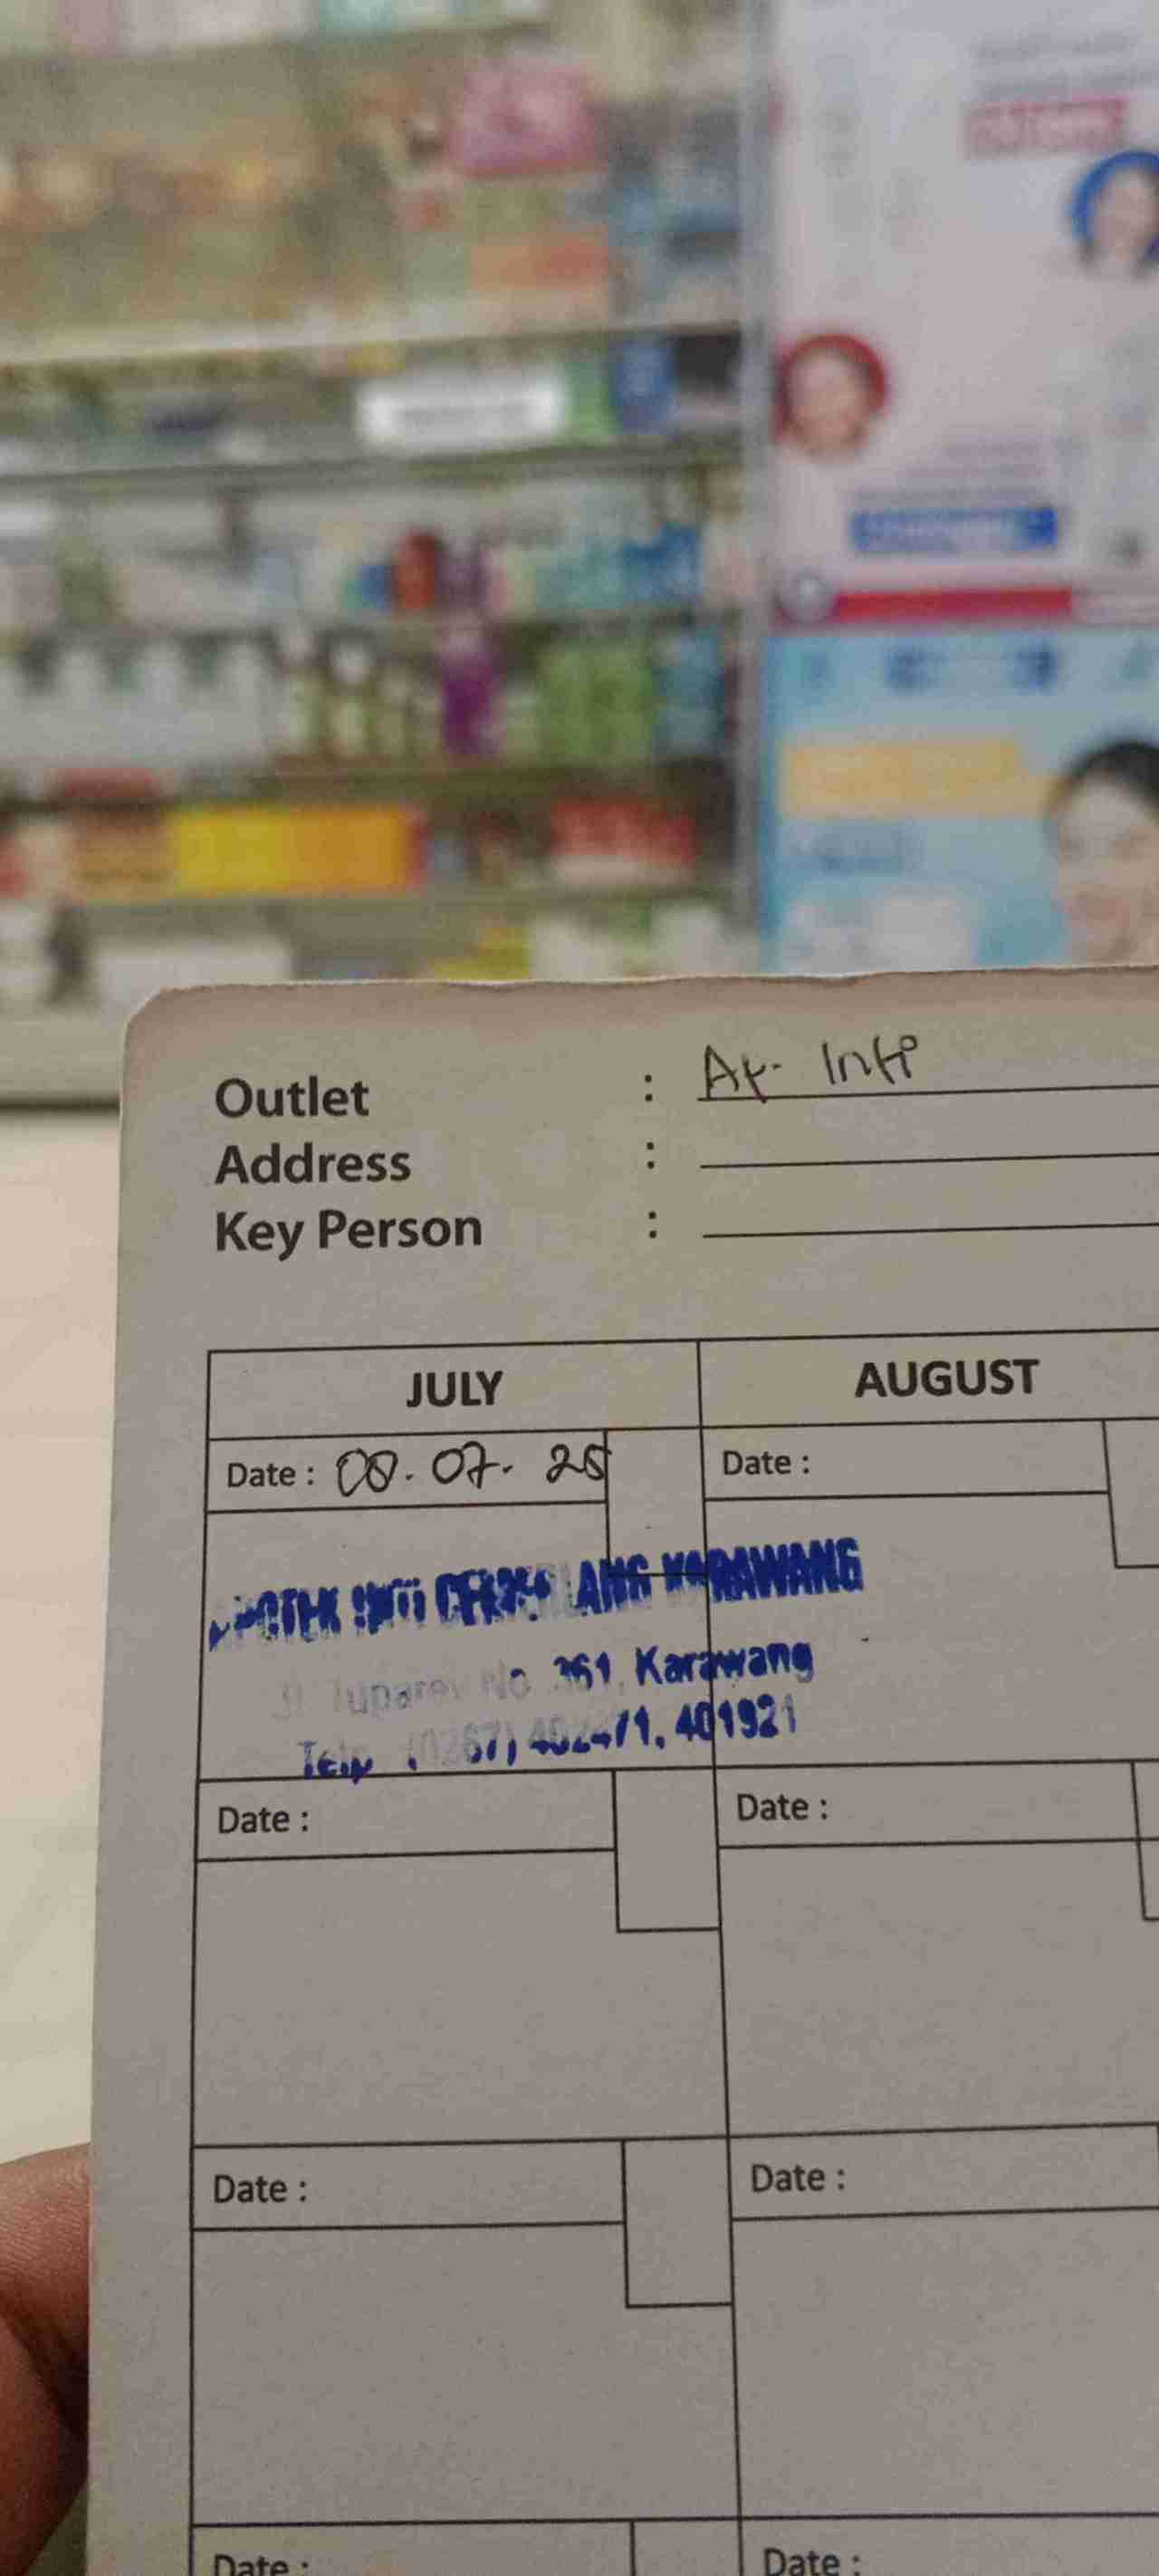 Outlet : Ap. Inti
Address :
Key Person :
JULY AUGUST
Date : 08. 07. 25 Date :
APOTEK INTI LANG KARAWANG
Jl. Tuparev No 361, Karawang
Telp. (0267) 402471, 401921
Date : Date :
Date : Date :
Date : Date :